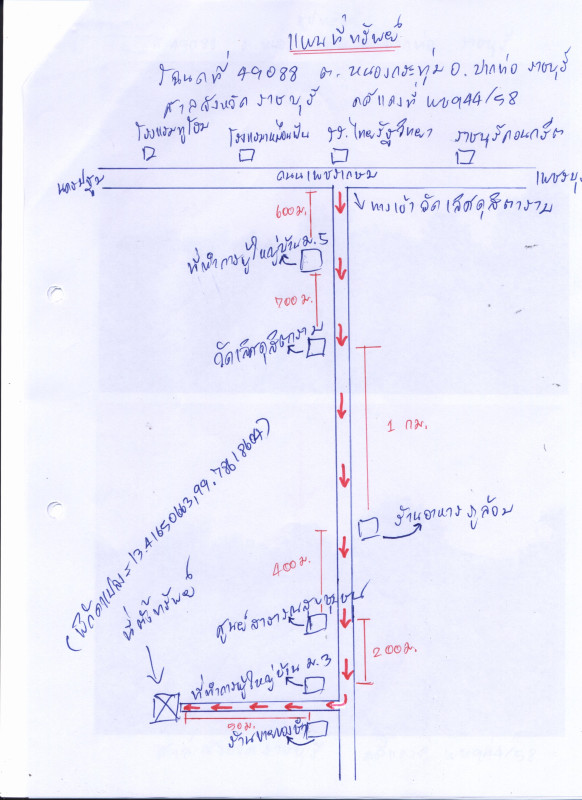 แผนที่ทรัพย์
โฉนดที่ 49088 ต. หนองกระทุ่ม อ. ปากท่อ ราชบุรี
ศาลจังหวัด ราชบุรี คดีแดงที่ ผบ944/58
โรงแรม
โรงแรมเหมือนฝัน
รร. ไทยรัฐวิทยา
ราชบุรีคอนกรีต
นครปฐม
ถนนเพชรเกษม
เพชรบุรี
600ม.
ทางเข้า วัดเลิศดุสิตาราม
ที่ทำการผู้ใหญ่บ้าน ม.5
700ม.
วัดเลิศดุสิตาราม
1 กม.
ร้านอาหาร ภูล้อม
(พิกัดแปลง = 13.41650663,99.7861860A)
ที่ตั้งทรัพย์
400ม.
ศูนย์สาธารณสุขชุมชน
200ม.
ที่ทำการผู้ใหญ่บ้าน ม.3
50ม.
ร้านขายของชำ